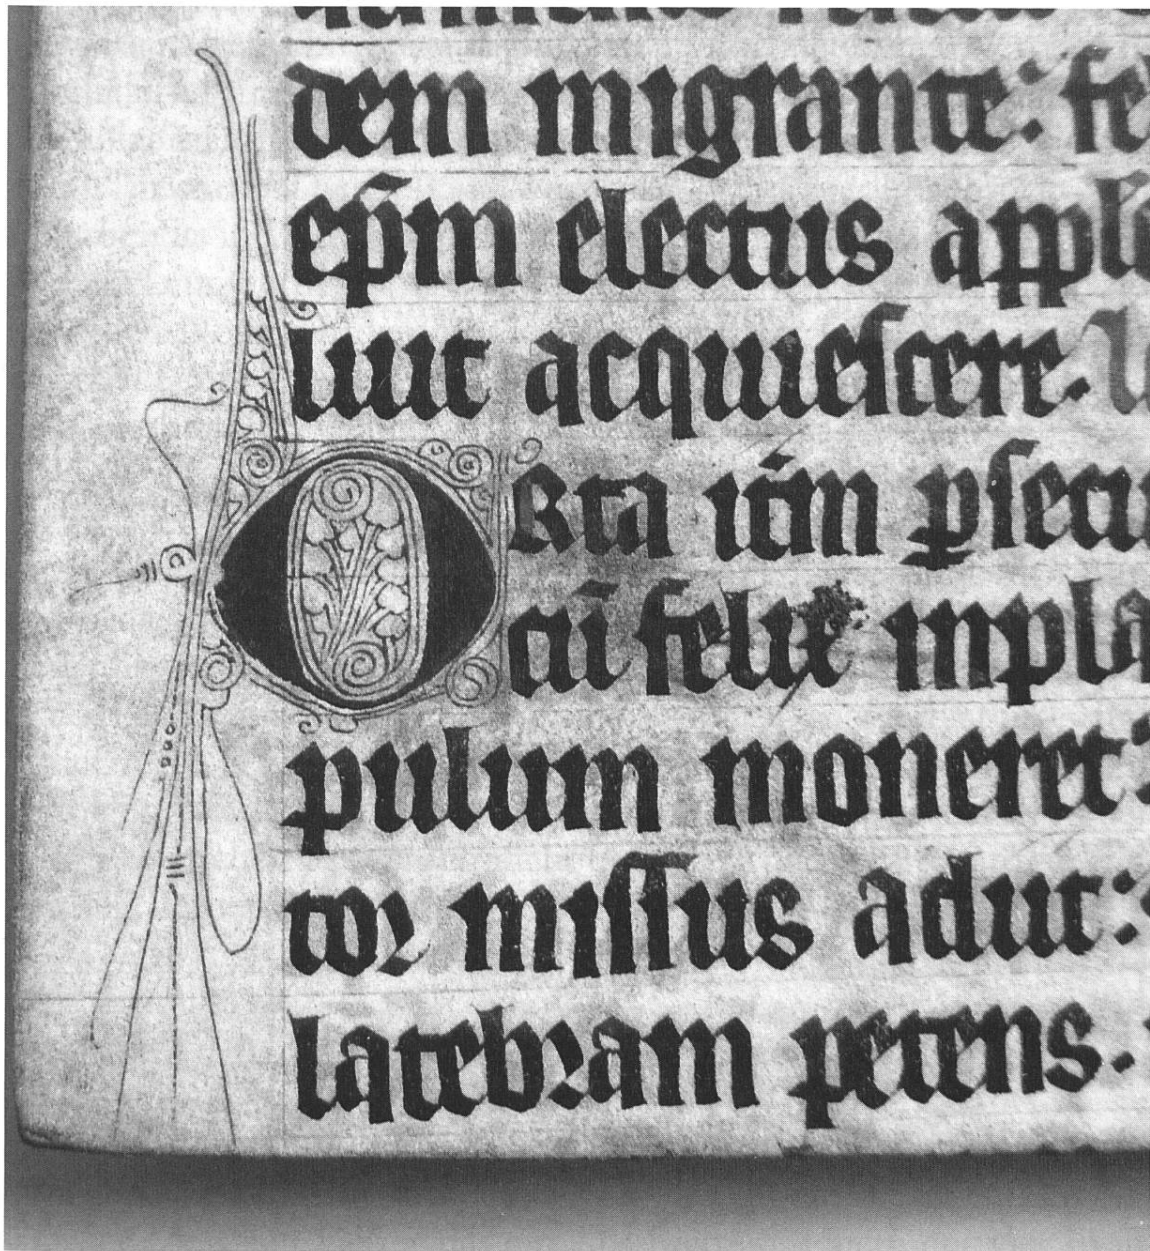 dem migrante: fe
ep̄m electus appl
luit acquiescere.
ORta iťm ꝑsecu
cū felix inpla
pulum moneret:
tor missus adiit:
latebram petens.